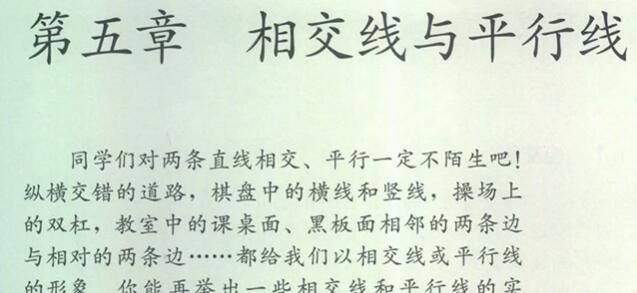 第五章 相交线与平行线
同学们对两条直线相交、平行一定不陌生吧!
纵横交错的道路，棋盘中的横线和竖线，操场上
的双杠，教室中的课桌面、黑板面相邻的两条边
与相对的两条边……都给我们以相交线或平行线
的形象。你能再举出一些相交线和平行线的实